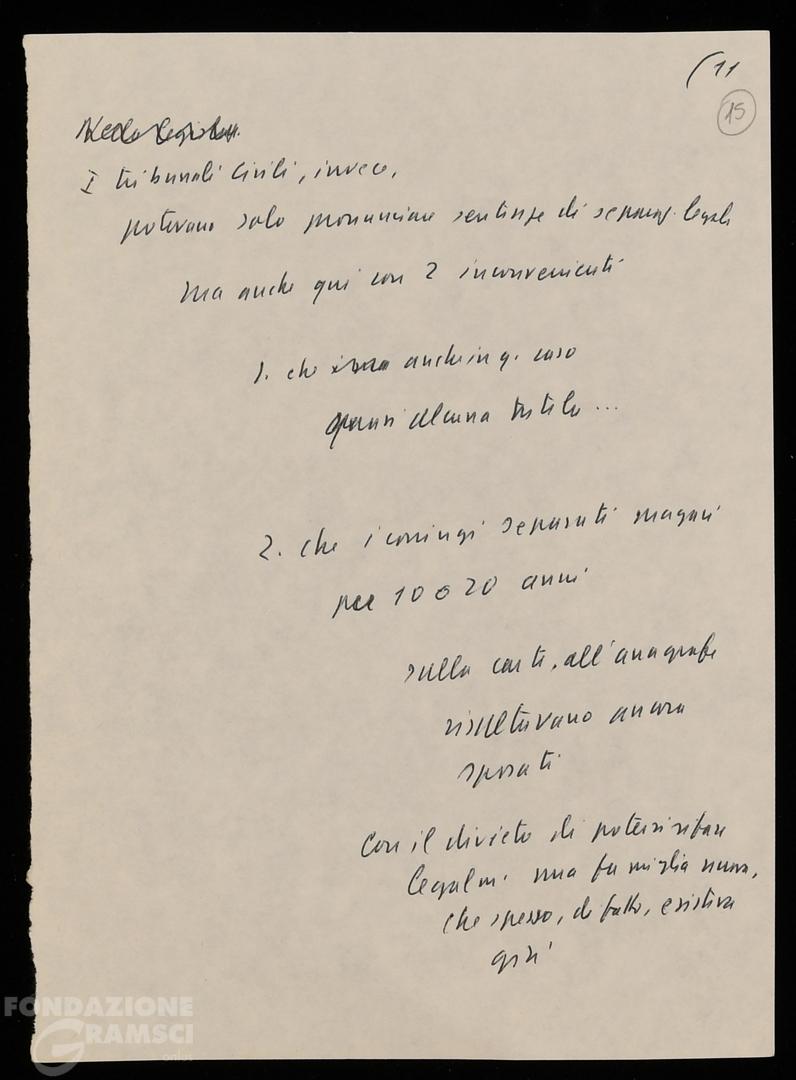 (11
15
I tribunali civili, invece,
potevano solo pronunciare sentenze di separaz. legale
ma anche qui con 2 inconvenienti
1. che anche in q. caso
quasi alcuna tutela ...
2. che i coniugi separati magari
per 10 o 20 anni
sulla carta, all'anagrafe
risultavano ancora
sposati
Con il divieto di potersi rifare
legalm. una famiglia nuova,
che spesso, di fatto, esisteva
già
FONDAZIONE
GRAMSCI
onlus